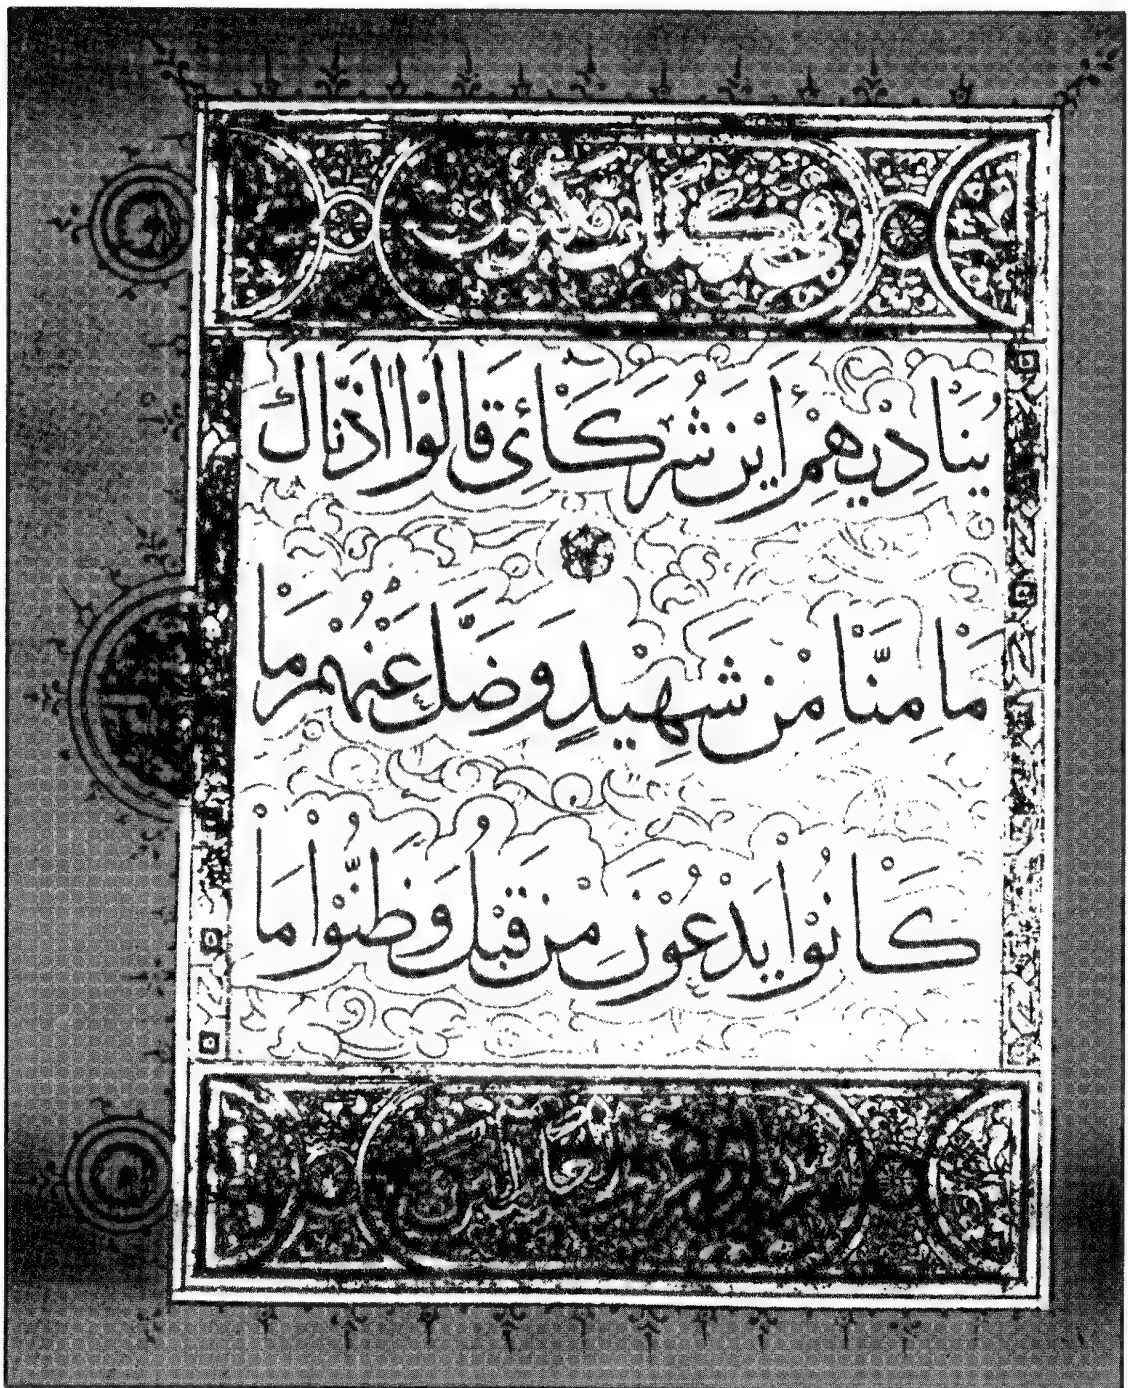 في كتاب مكنون
يُنَادِيهِمْ أَيْنَ شُرَكَائِي قَالُوا اذَنَّاكَ
مَا مِنَّا مِنْ شَهِيدٍ وَضَلَّ عَنْهُمْ مَا
كَانُوْا يَدْعُوْنَ مِنْ قَبْلُ وَظَنُّوْا مَا
العالمين